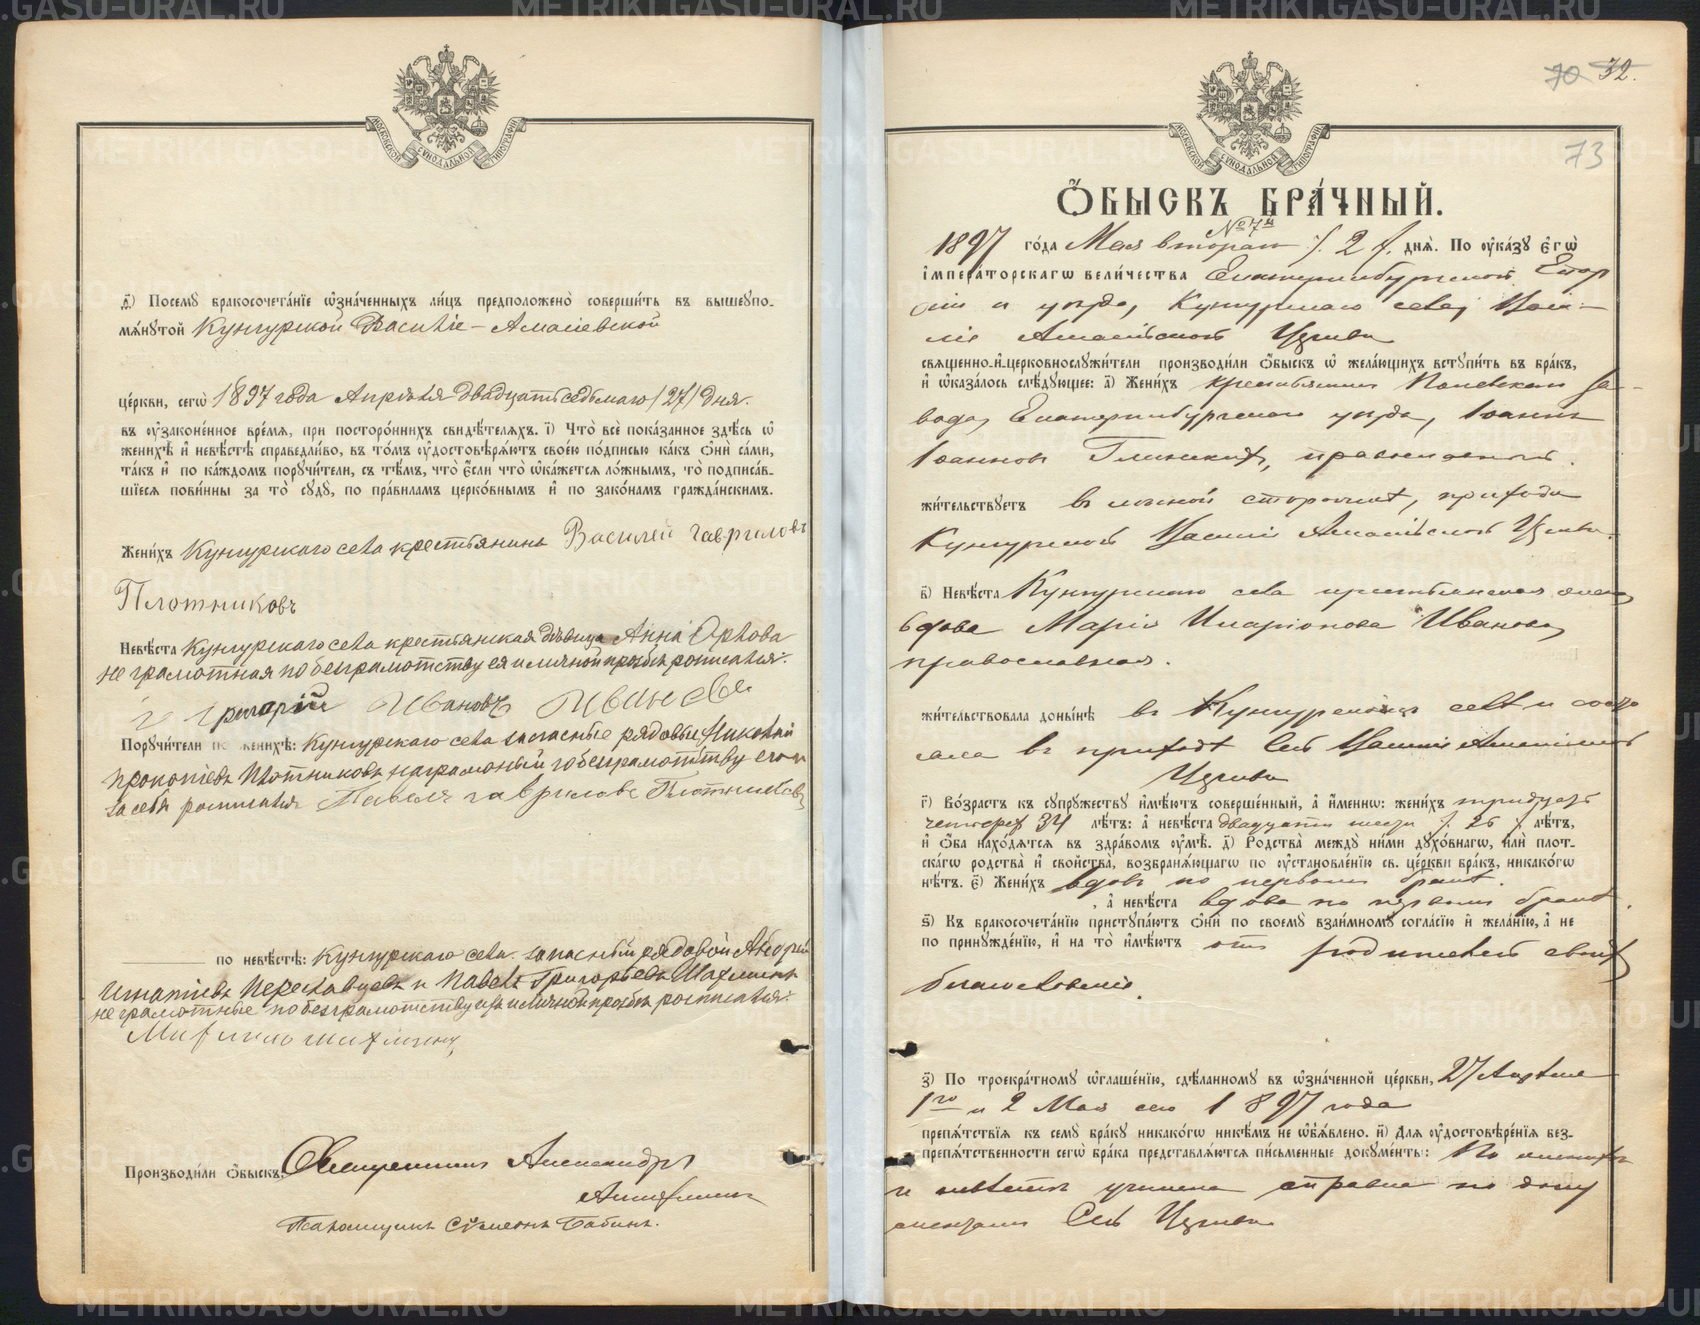 д҃) Посемꙋ бракосочета́нїе ѡ҆зна́ченныхъ ли́цъ предположено̀ соверши́ть въ вышеꙋпо-
мѧ́нꙋтой Кунгурской Василіе-Амасіевской
це́ркви, сегѡ̀ 1897 года Апрѣля двадцать седьмаго /27/ дня.
въ ᲂу҆зако́ненное вре́мѧ, при посторо́ннихъ свидѣ́телѧхъ. і҃) Что̀ всѐ пока́занное здѣ́сь ѡ҆
женихѣ̀ и҆ невѣ́стѣ справедли́во, въ то́мъ ᲂу҆достовѣрѧ́ютъ свое́ю по́дписью ка́къ ѻ҆нѝ са́ми,
та́къ и҆ по ка́ждомъ порꙋчи́тели, съ тѣ́мъ, что̀ є҆́сли что̀ ѡ҆ка́жетсѧ ло́жнымъ, то̀ подписа́в-
шїесѧ пови́нны за то̀ сꙋдꙋ̀, по пра́виламъ церко́внымъ и҆ по зако́намъ гражда́нскимъ.
Жени́хъ Кунгурскаго села крестьянинъ Василей Гаврилов
Плотниковъ
Невѣ́ста Кунгурскаго села крестьянская дѣвица Анна Орлова
не грамотная по безграмотству ея и личной прозьбѣ росписался:
Григорій Ивановъ Иванов
Порꙋчи́тели по женихѣ̀: Кунгурскаго села запасные рядовые Николай
Прокопіевъ Плотниковъ неграмотный по безграмотству его и
за себя росписался Павелъ Гаврилове Плотниковъ
по невѣ́стѣ: Кунгурскаго села запасный рядовой Андрей
Игнатіевъ Переславцевъ и Павелъ Григорьевъ Шахминъ
не грамотные по безграмотству ихъ и личной прозьбѣ росписался:
Производи́ли ѻ҆́быскъ: Священникъ Александръ
Псаломщикъ Сѵмеонъ Бабинъ.
70 32.
73
Ѻ҆БЫСКЪ БРА́ЧНЫЙ.
№ 7й
1897 го́да Мая втораго /. 2 /. днѧ̀. По ᲂу҆ка́зꙋ є҆гѡ̀
і҆мпера́торскагѡ вели́чества Екатеринбургской Епар
хіи и уѣзда, Кунгурскаго села, Васи-
ліе Амасійской Церкви
свѧще́нно-и҆-церковнослꙋжи́тели производи́ли ѻ҆́быскъ ѡ҆ жела́ющихъ встꙋпи́ть въ бра́къ,
и҆ ѡ҆каза́лось слѣ́дꙋющее: а҃) Жени́хъ крестьянинъ Полевскаго за-
вода, Екатеринбургскаго уѣзда, Іоаннъ
Іоанновъ Глинскихъ, православный.
жи́тельствꙋетъ въ прихода
Кунгурской Василіе Амасійской Церкви.
в҃) Невѣ́ста Кунгурскаго села крестьянская жена
вдова Марія Иларіонова Иванова,
православная.
жи́тельствовала доны́нѣ въ Кунгурскомъ селѣ и состо
яла въ приходѣ Сей Василіе Амасійской
Церкви
г҃) Во́зрастъ къ сꙋпрꙋ́жествꙋ и҆мѣ́ютъ соверше́нный, а҆ и҆́менно: жени́хъ тридцать
четырехъ 34 лѣ́тъ: а҆ невѣ́ста двадцати шести /. 26 /. лѣ́тъ,
и҆ ѻ҆́ба нахо́дѧтсѧ въ здра́вомъ ᲂу҆мѣ̀. д҃) Родства̀ междꙋ̀ ни́ми дꙋхо́внагѡ, и҆лѝ плот-
ска́гѡ родства̀ и҆ свойства̀, возбранѧ́ющагѡ по ᲂу҆становле́нїю св. це́ркви бра́къ, никако́гѡ
нѣ́тъ. є҃) Жени́хъ вдовъ по первомъ бракѣ.
, а҆ невѣ́ста вдова по первомъ бракѣ.
ѕ҃) Къ бракосочета́нїю пристꙋпа́ютъ ѻ҆нѝ по своемꙋ̀ взаи́мномꙋ согла́сїю и҆ жела́нїю, а҆ не
по принꙋжде́нїю, и҆ на то̀ и҆мѣ́ютъ отъ родителей своихъ
благословеніе.
з҃) По троекра́тномꙋ ѡ҆глаше́нїю, сдѣ́ланномꙋ въ ѡ҆зна́ченной це́ркви, 27 Апрѣля
1го и 2 Мая сего 1897 года
препѧ́тствїѧ къ семꙋ̀ бра́кꙋ никако́гѡ никѣ́мъ не ѡ҆б̾ѧ́влено. и҃) Длѧ ᲂу҆достовѣре́нїѧ без-
препѧ́тственности сегѡ̀ бра́ка представлѧ́ютсѧ пи́сьменные докꙋме́нты: По женихѣ
и невѣстѣ учинена справка по доку
ментамъ Сей Церкви